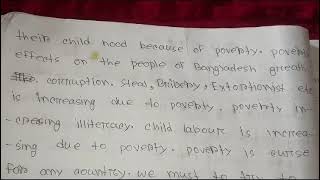 their child need because of poverty. poverty
effects on the people of Bangladesh greath
corruption. Steal, Bribery, Extortionist etc
is increasing due to poverty. poverty in-
-creasing illiteracy. child labour is increa-
-sing due to poverty. poverty is curse
for any country. we must to try to